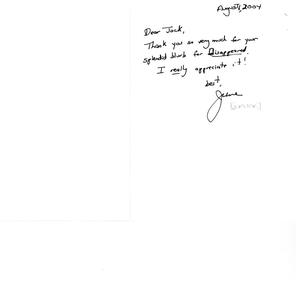 August, 2004
Dear Jack,
Thank you so very much for your
splendid blurb for Disappeared.
I really appreciate it!
best,